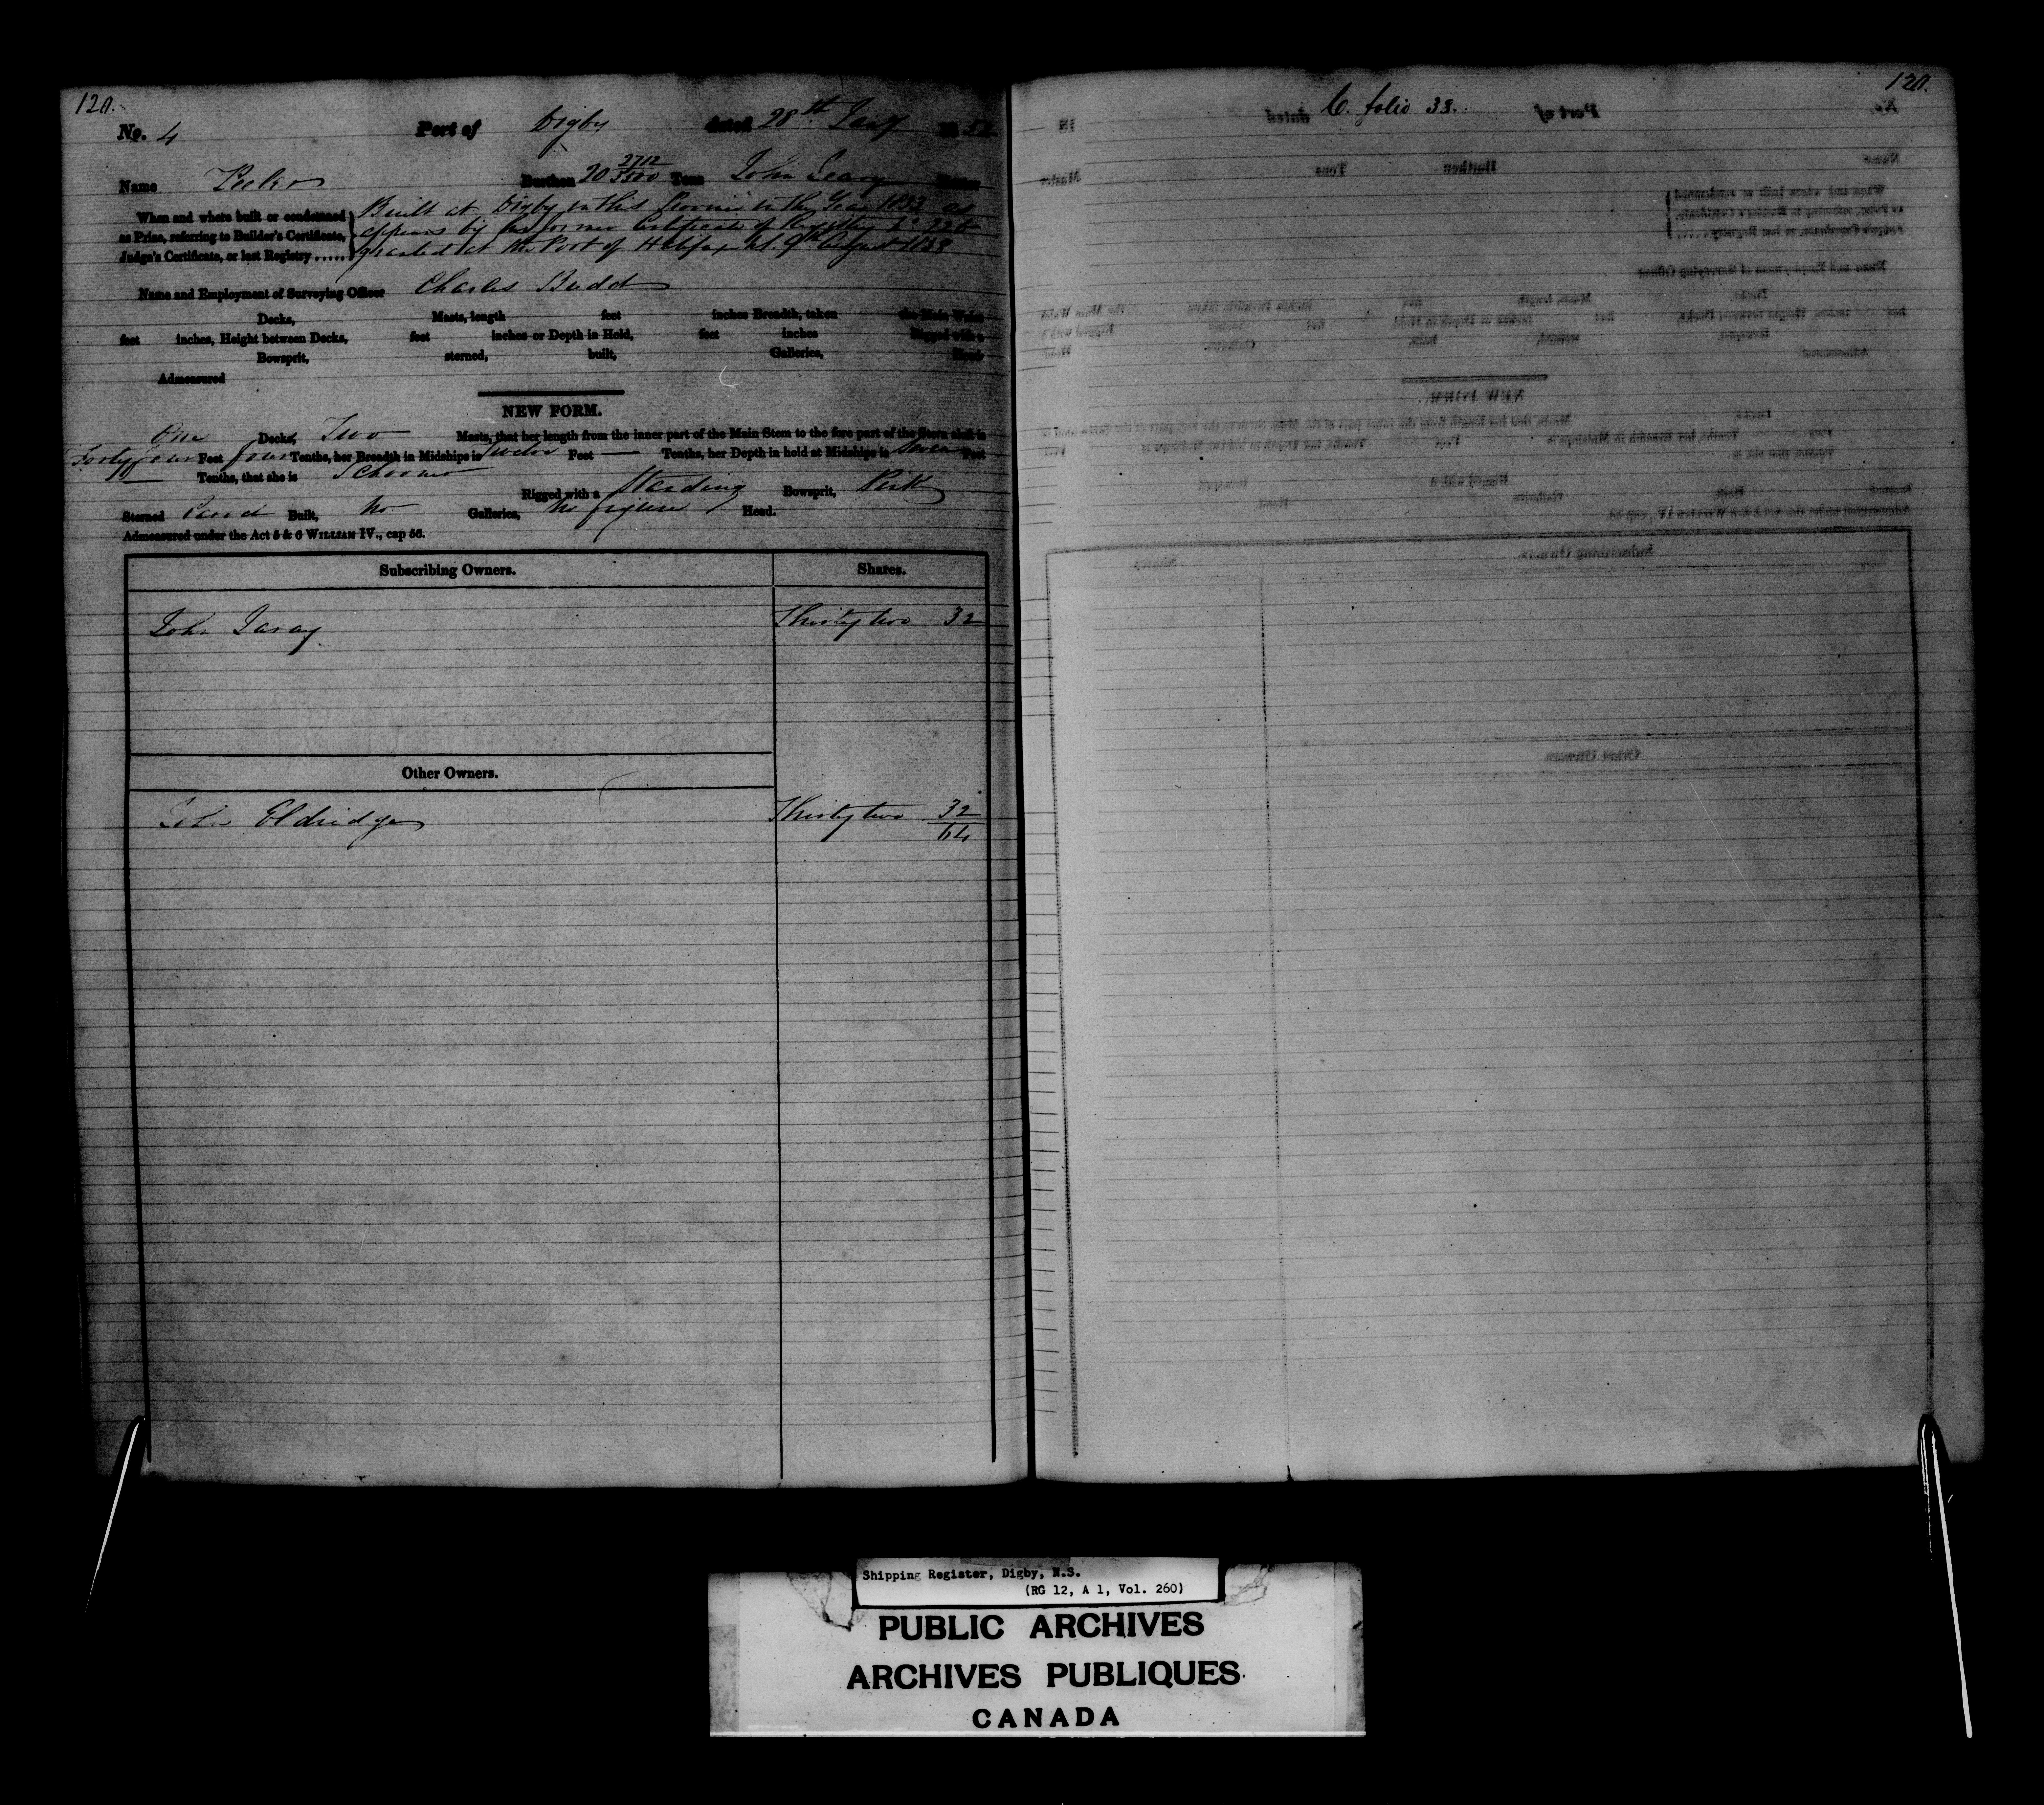 120.
No. 4 Port of Digby dated 28th Jany 18 52
Name Burthen 20 2712/3500 Tons John Leary Master
When and where built or condemned
as Prize, referring to Builder's Certificate,
Judge's Certificate, or last Registry ......
Built at Digby in this Province in the Year 1833 as
appears by her former Certificate of Registry No
granted at the Port of Halifax 9th August 1838
Name and Employment of Surveying Officer Charles Budd
Decks, Masts, length feet inches Breadth, taken the Main Wales
feet inches, Height between Decks, feet inches or Depth in Hold, feet inches Rigged with a
Bowsprit, sterned, built, Galleries, Head.
Admeasured
NEW FORM.
One Decks, Two Masts, that her length from the inner part of the Main Stem to the fore part of the Stern aloft is
Forty four Feet four Tenths, her Breadth in Midships is Twelve Feet — Tenths, her Depth in hold at Midships is Seven Feet
— Tenths, that she is Schooner
Rigged with a Standing Bowsprit, Pink
Sterned Carvel Built, No Galleries, No figure Head.
Admeasured under the Act 5 & 6 WILLIAM IV., cap 56.
Subscribing Owners. Shares.
John Thirty two 32
Other Owners.
John Eldridge Thirty two 32
64
120.
C. folio 33.
Shipping Register, Digby, N.S.
(RG 12, A 1, Vol. 260)
PUBLIC ARCHIVES
ARCHIVES PUBLIQUES
CANADA